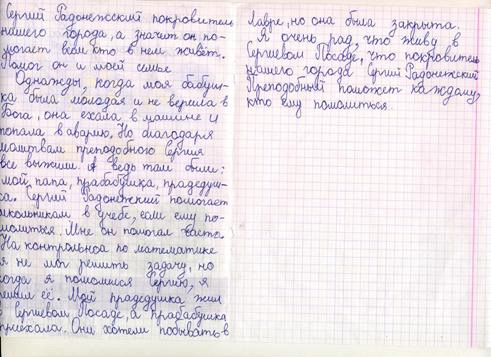 Сергий Радонежский покровитель
нашего города, а значит он по-
могает всем кто в нем живёт.
Помог он и моей семье
Однажды, когда моя бабуш-
ка была молодая и не верила в
Бога, она ехала в машине и
попала в аварию. Но благодаря
молитвам преподобного Сергия
все выжили. А ведь там были:
мой папа, прабабушка, прадедуш-
ка. Сергий Радонежский помогает
школьникам в учебе, если ему по-
молиться. Мне он помогал часто.
На контрольной по математике
я не мог решить задачу, но
когда я помолился Сергию, я
решил её. Мой прадедушка жил
в Сергиевом Посаде, а прабабушка
приехала. Они хотели побывать в
Лавре, но она была закрыта.
Я очень рад, что живу в
Сергиевом Посаде, что покровитель
нашего города Сергий Радонежский
Преподобный поможет каждому,
кто ему помолиться.